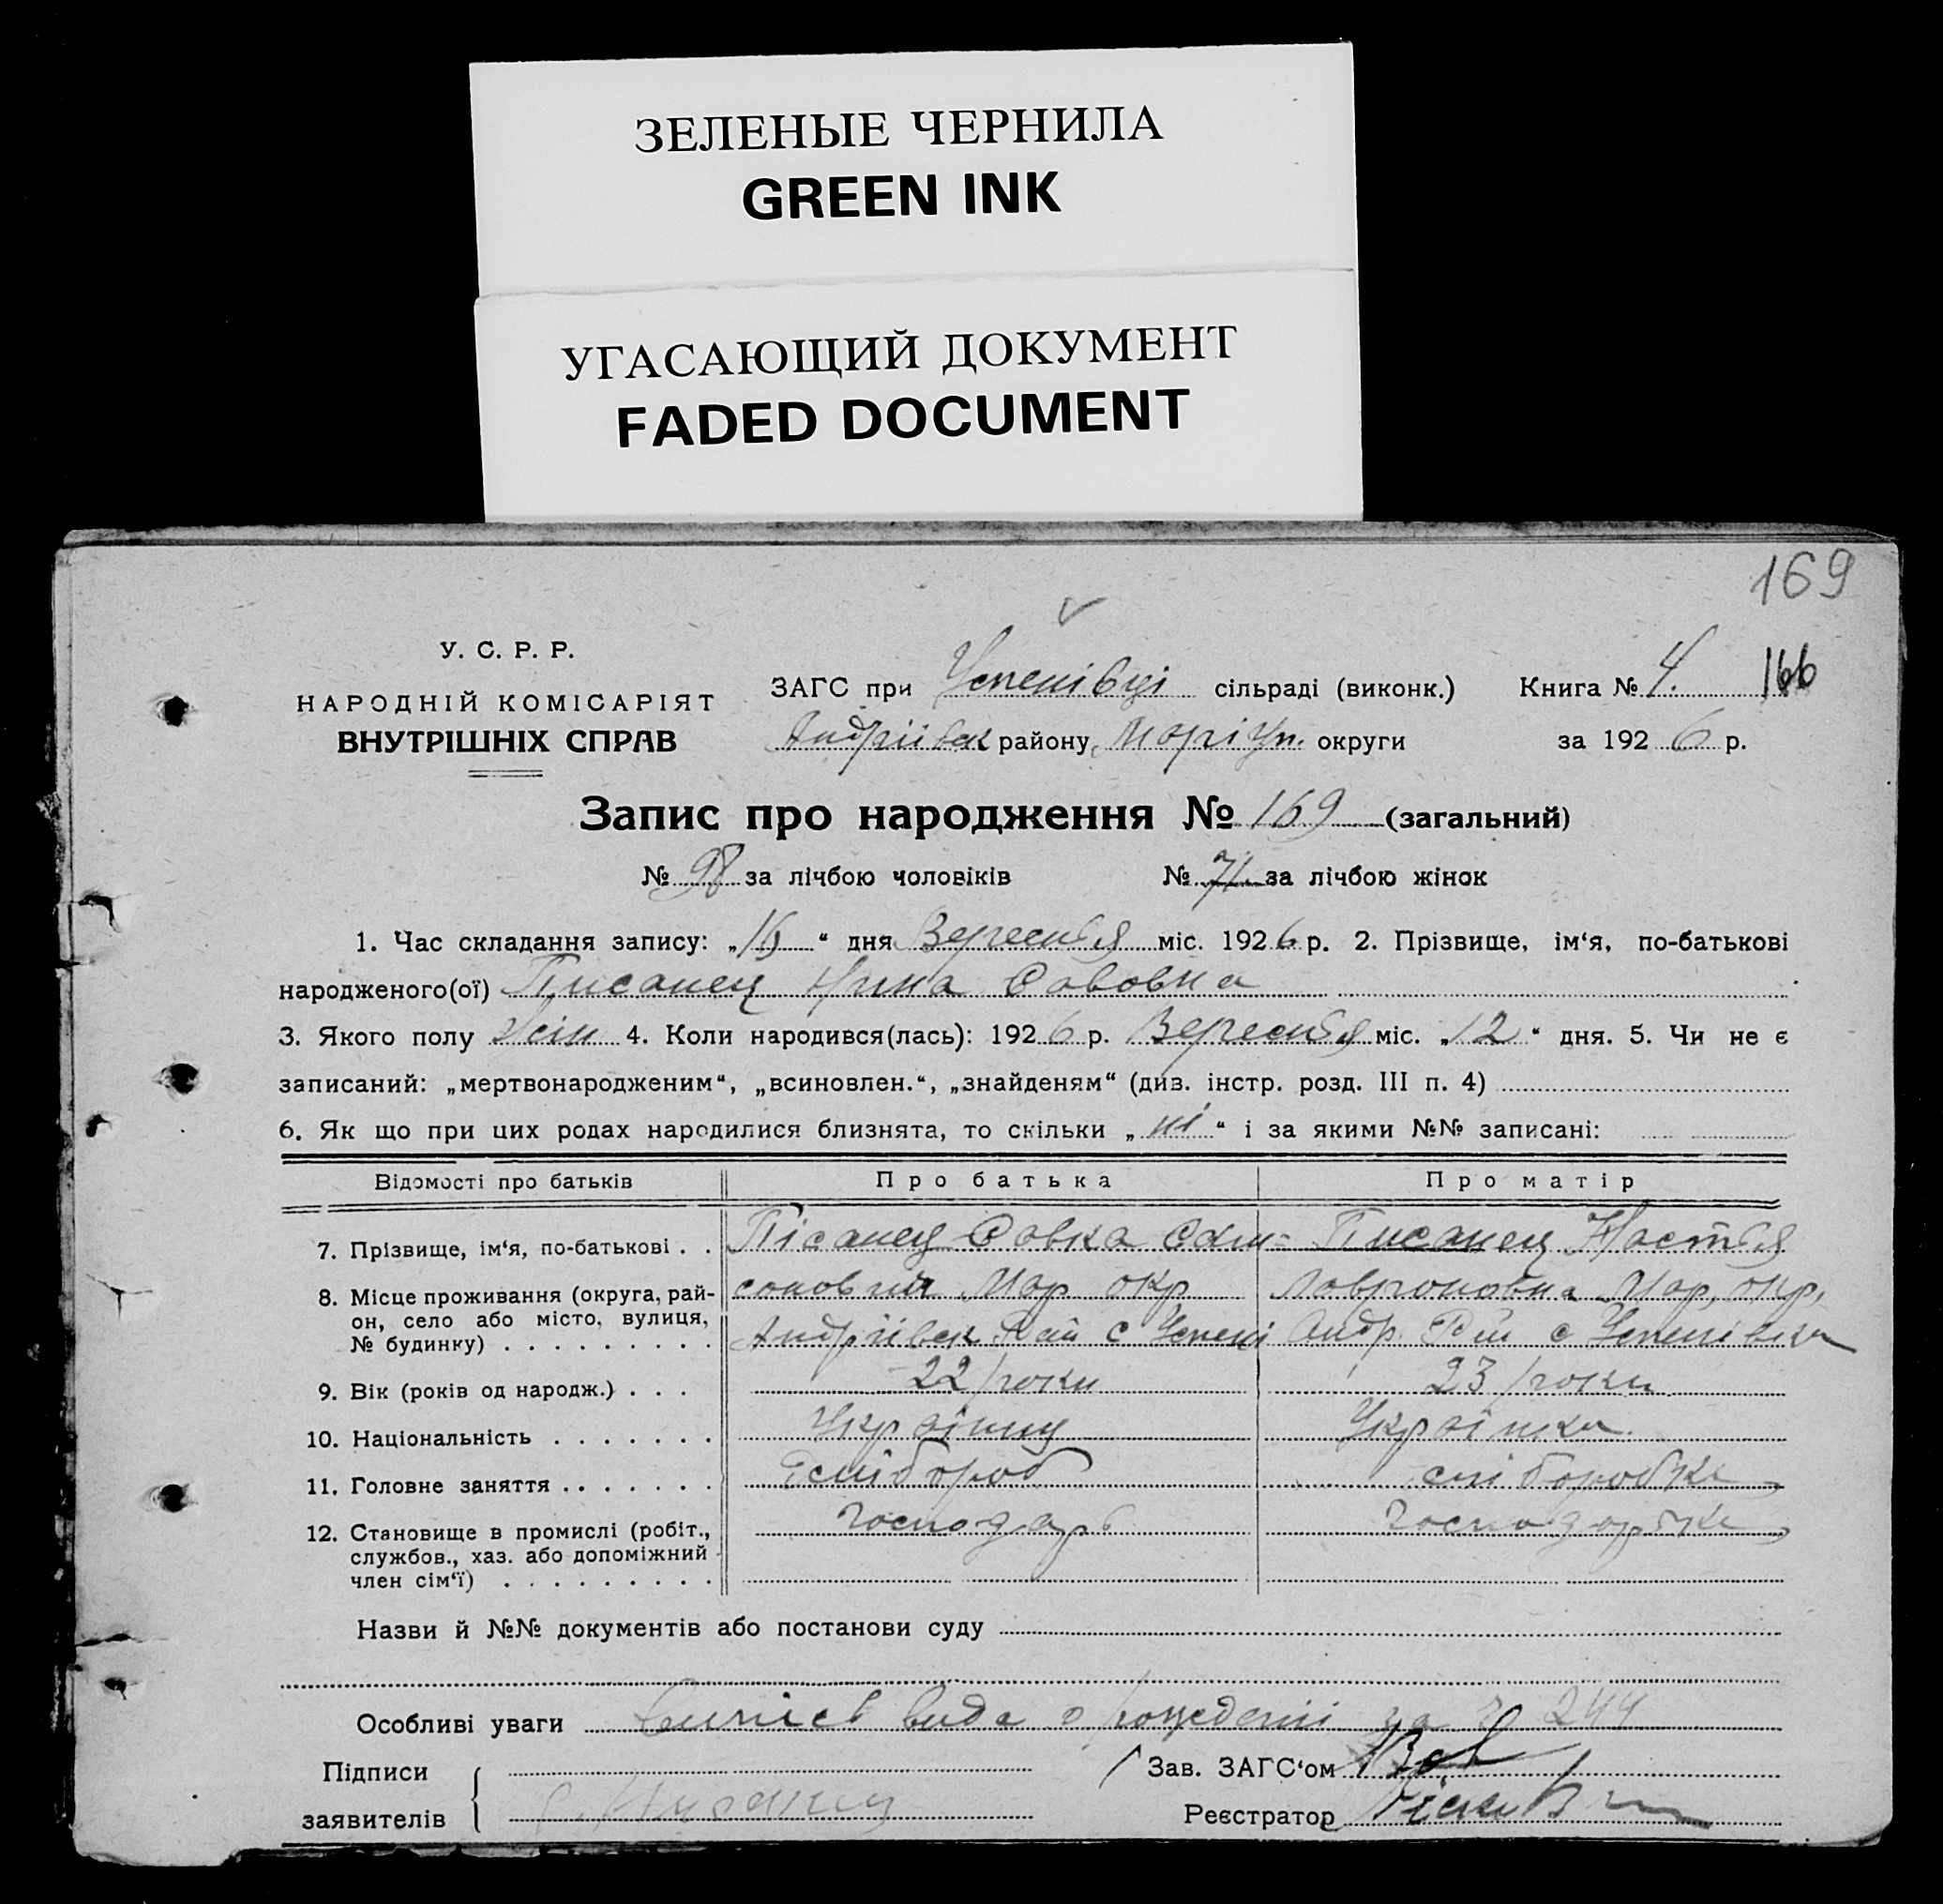 ЗЕЛЕНЫЕ ЧЕРНИЛА
GREEN INK
УГАСАЮЩИЙ ДОКУМЕНТ
FADED DOCUMENT
169
У. С. Р. Р.
НАРОДНІЙ КОМІСАРІЯТ
ВНУТРІШНІХ СПРАВ
ЗАГС при Успенівці сільраді (виконк.) Книга № 4. 166
Андріївск району, Маріуп. округи за 1926 р.
Запис про народження № 169 (загальний)
№ 98 за лічбою чоловіків № 71 за лічбою жінок
1. Час складання запису: „ “ дня Вересня міс. 1926 р. 2. Прізвище, ім‘я, по-батькові
народженого(ої) Писанец Нина Савовна
3. Якого полу жін 4. Коли народився(лась): 1926 р. Вересня міс. „12“ дня. 5. Чи не є
записаний: „мертвонародженим“, „всиновлен.“, „знайденям“ (див. інстр. розд. III п. 4)
6. Як що при цих родах народилися близнята, то скільки „ні“ і за якими №№ записані:
Відомості про батьків Про батька Про матір
7. Прізвище, ім‘я, по-батькові . . Пісанец Савка Сам- Писанец Настя
8. Місце проживання (округа, рай- сонович Мар окр Мар, окр,
он, село або місто, вулиця, Андріівск Рай с Успені Андр. Рай с Успенівка
№ будинку) . . . . . . . . .
9. Вік (років од народж.) . . . 22 роки 23 роки
10. Національність . . . . . . . Українец Українка
11. Головне заняття . . . . . . . хлібороб хліборобка
12. Становище в промислі (робіт., господарь господарка
службов., хаз. або допоміжний
член сім‘ї) . . . . . . . . .
Назви й №№ документів або постанови суду
Особливі уваги вида о рождении за № 244
Підписи
заявителів
Зав. ЗАГС‘ом
Реєстратор